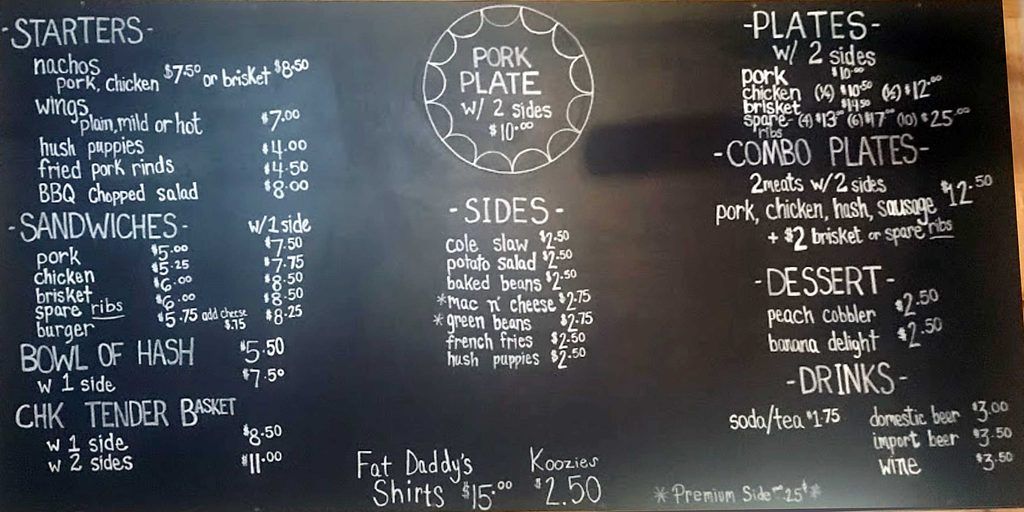 -STARTERS-
nachos
pork, chicken $7.50 or brisket $8.50
wings
plain, mild or hot $7.00
hush puppies $4.00
fried pork rinds $4.50
BBQ chopped salad $8.00
-SANDWICHES- w/1 side
pork $5.00 $7.50
chicken $5.25 $7.75
brisket $6.00 $8.50
spare ribs $6.00 $8.50
burger $5.75 add cheese $.75 $8.25
BOWL OF HASH $5.50
w 1 side $7.50
CHK TENDER BASKET
w 1 side $8.50
w 2 sides $11.00
PORK
PLATE
w/ 2 sides
$10.00
-SIDES-
cole slaw $2.50
potato salad $2.50
baked beans $2.50
*mac n' cheese $2.75
*green beans $2.75
french fries $2.50
hush puppies $2.50
Fat Daddy's
Shirts $15.00
Koozies
$2.50
-PLATES-
w/ 2 sides
pork $10.00
chicken (¼) $10.50 (½) $12.00
brisket $14.50
spare- (4) $13.00 (6) $17.00 (10) $25.00
ribs
-COMBO PLATES-
2 meats w/ 2 sides
pork, chicken, hash, sausage $12.50
+ $2 brisket or spare ribs
-DESSERT-
peach cobbler $2.50
banana delight $2.50
-DRINKS-
soda/tea $1.75 domestic beer $3.00
import beer $3.50
wine $3.50
*Premium Side 25¢*